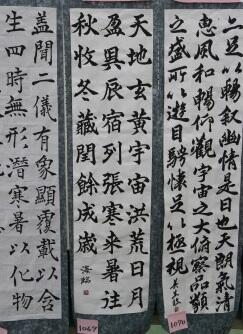 足以暢叙幽情是日也天朗氣清
惠風和暢仰觀宇宙之大俯察品類
之盛所以遊目騁懷足以極視
1070
天地玄黃宇宙洪荒日月
盈昃辰宿列張寒来暑往
秋收冬藏閏餘成歲
1069
蓋聞二儀有象顯覆載以含
生四時無形潛寒暑以化物